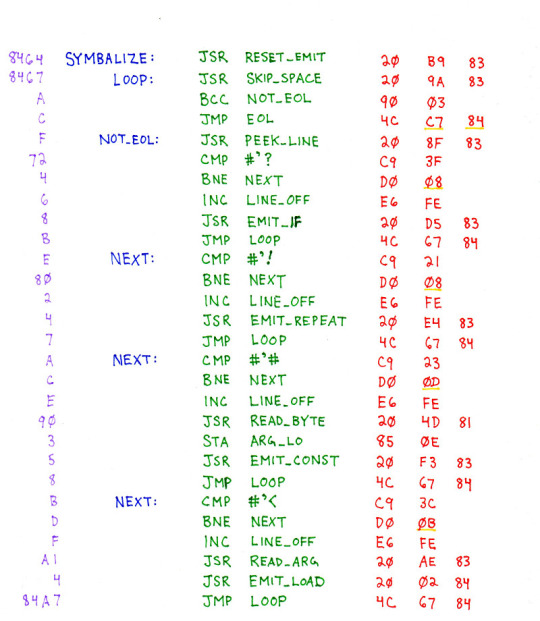 8464 SYMBALIZE: JSR RESET_EMIT 20 B9 83
8467 LOOP: JSR SKIP_SPACE 20 9A 83
A BCC NOT_EOL 90 03
C JMP EOL 4C C7 84
F NOT_EOL: JSR PEEK_LINE 20 8F 83
72 CMP #'? C9 3F
4 BNE NEXT D0 08
6 INC LINE_OFF E6 FE
8 JSR EMIT_IF 20 D5 83
B JMP LOOP 4C 67 84
E NEXT: CMP #'! C9 21
80 BNE NEXT D0 08
2 INC LINE_OFF E6 FE
4 JSR EMIT_REPEAT 20 E4 83
7 JMP LOOP 4C 67 84
A NEXT: CMP #'# C9 23
C BNE NEXT D0 0D
E INC LINE_OFF E6 FE
90 JSR READ_BYTE 20 4D 81
3 STA ARG_LO 85 0E
5 JSR EMIT_CONST 20 F3 83
8 JMP LOOP 4C 67 84
B NEXT: CMP #'< C9 3C
D BNE NEXT D0 0B
F INC LINE_OFF E6 FE
A1 JSR READ_ARG 20 AE 83
4 JSR EMIT_LOAD 20 02 84
84A7 JMP LOOP 4C 67 84